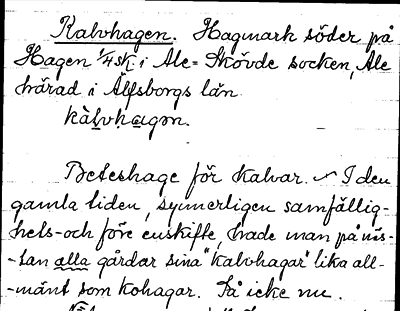 Kalvhagen. Hagmark söder på
Hagen 1/4 sk. i Ale-Skövde socken, Ale
härad i Älfsborgs län
kàlvhagən.
Beteshage för kalvar. ~ I den
gamla tiden, synnerligen samfällig-
hets- och före enskifte, hade man på näs-
-tan alla gårdar sina "kalvhagar" lika all-
-mänt som kohagar. Så icke nu.